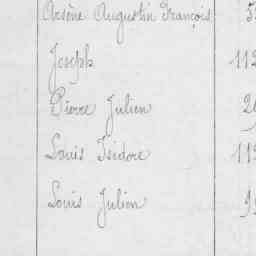 Arsène Augustin François
Joseph 112
Pierre Julien
Louis Isidore 112
Louis Julien